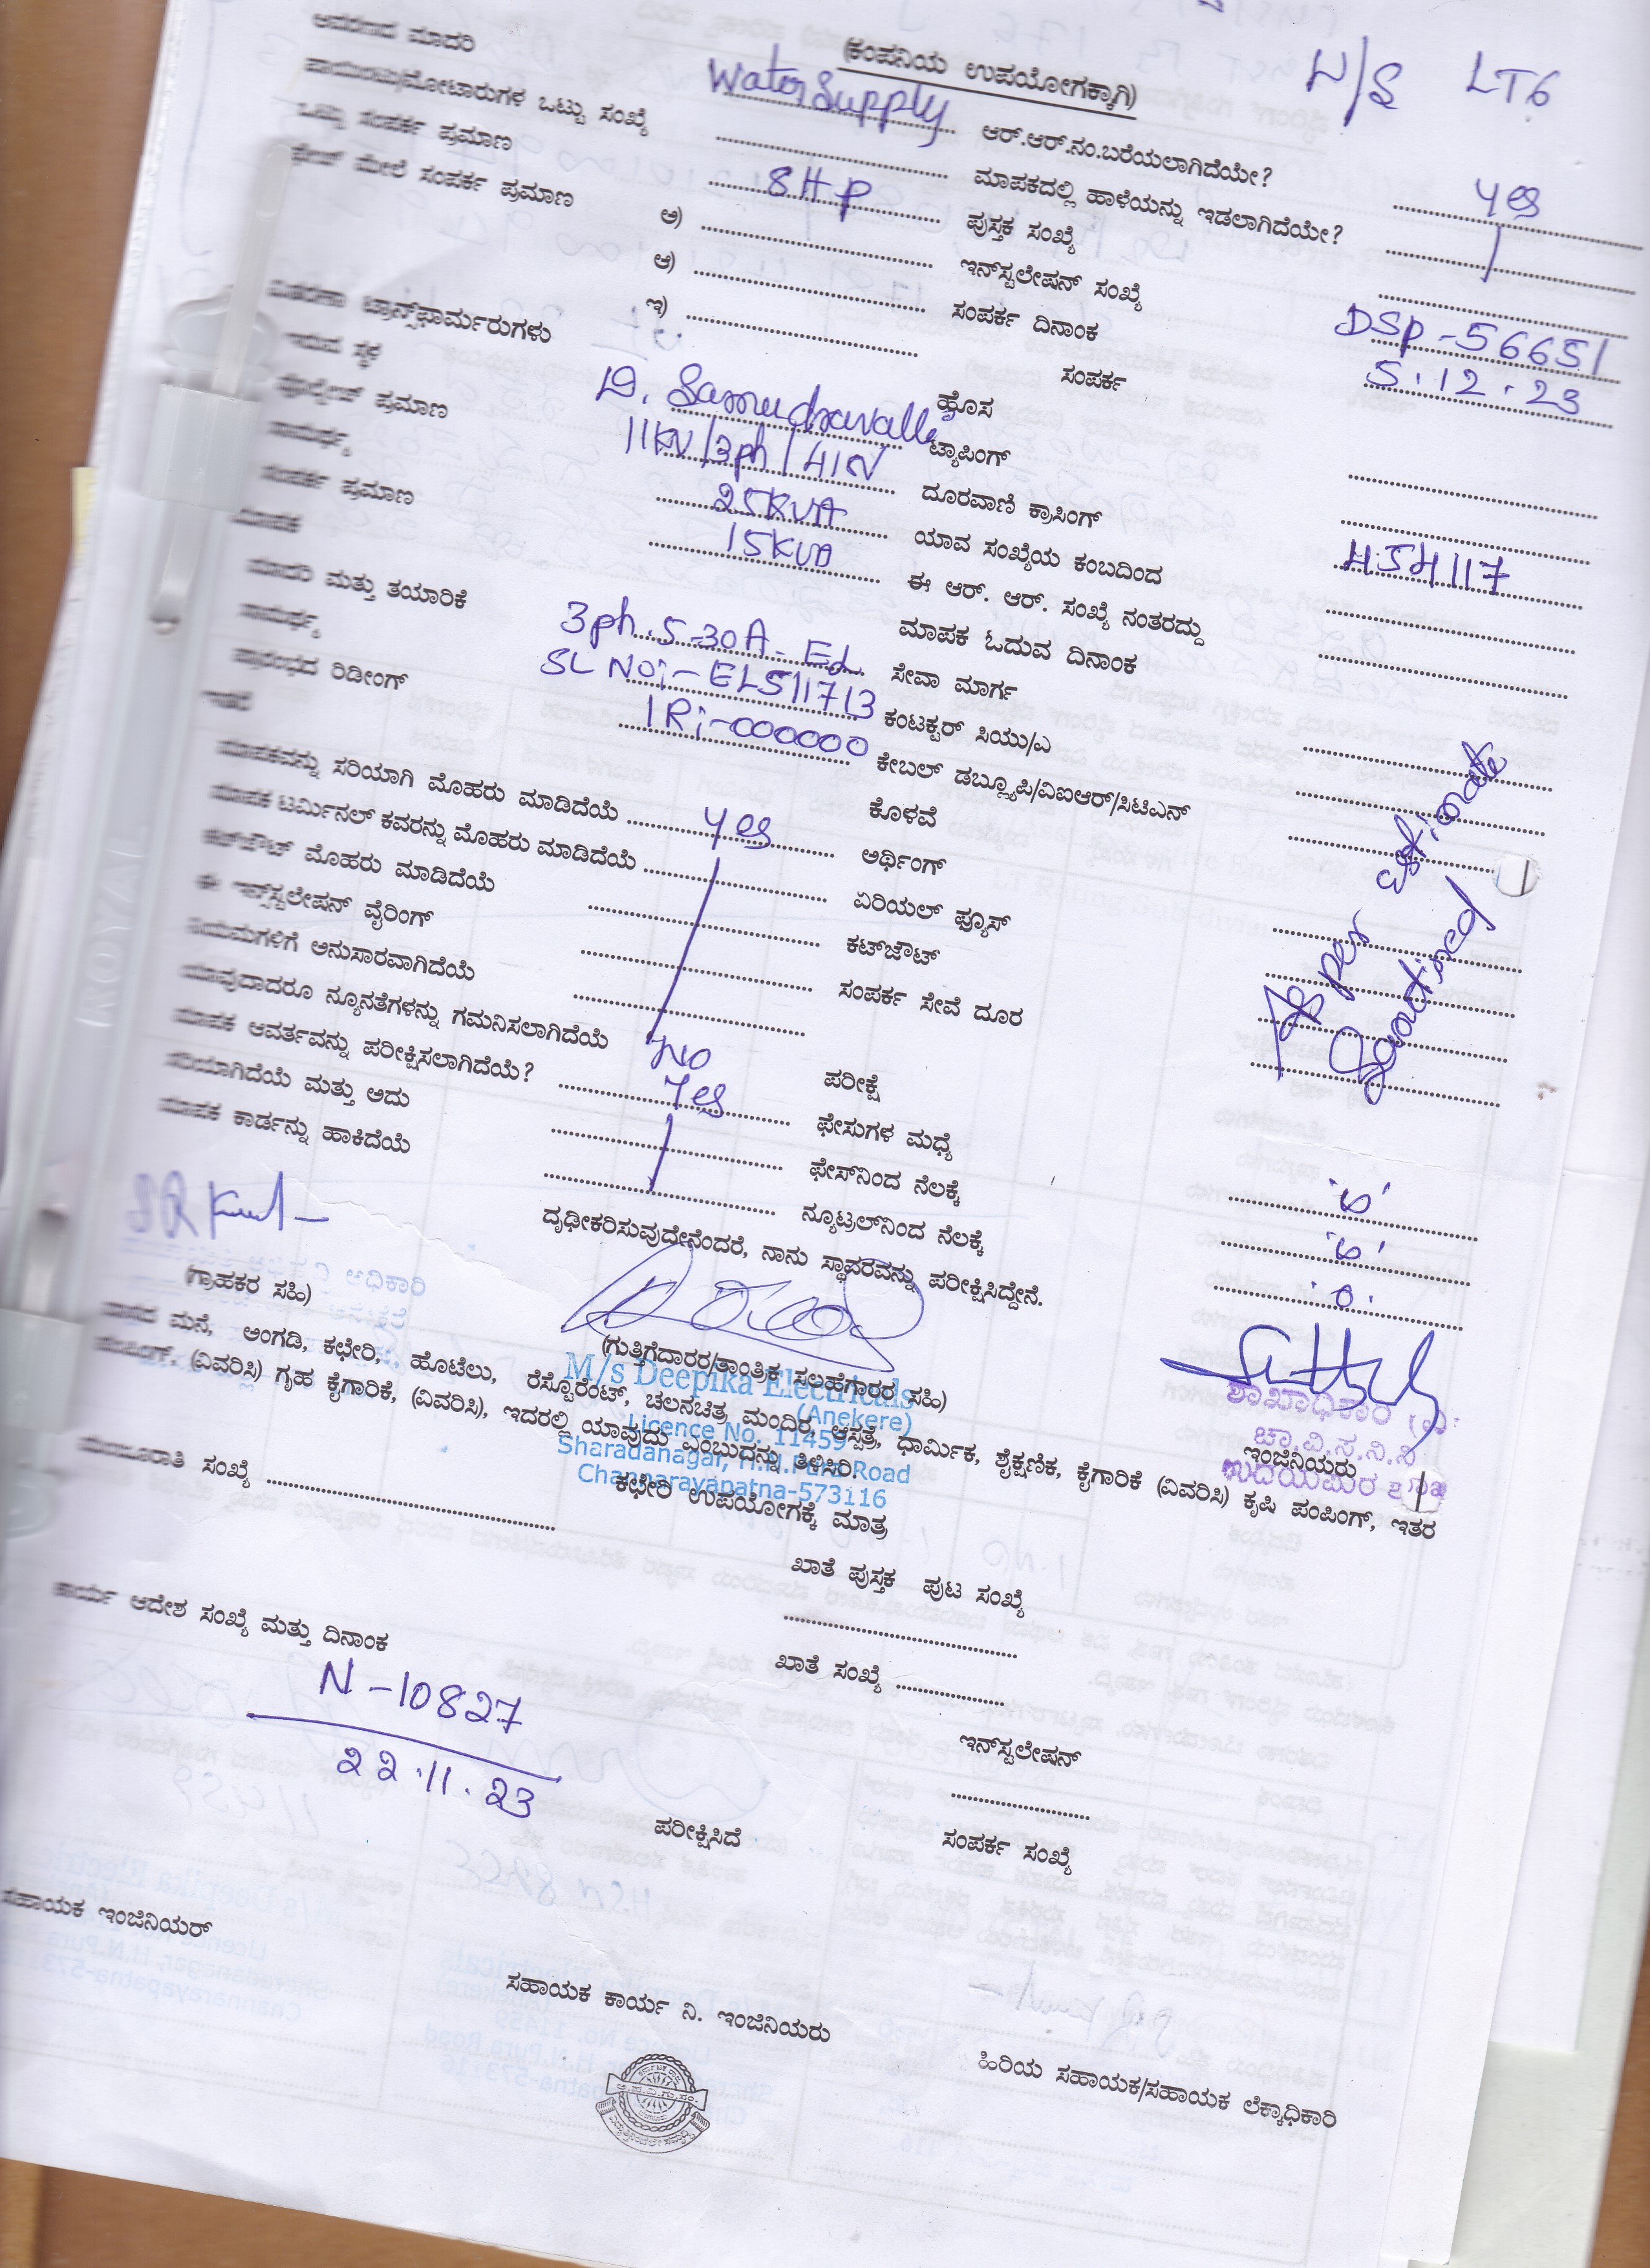 (ಕಂಪನಿಯ ಉಪಯೋಗಕ್ಕಾಗಿ)
W/S LT6
ಆವರಣದ ಮಾದರಿ Water Supply ಆರ್.ಆರ್.ನಂ.ಬರೆಯಲಾಗಿದೆಯೇ? yes
ಪಾಯಿಂಟು/ಮೋಟಾರುಗಳ ಒಟ್ಟು ಸಂಖ್ಯೆ ಮಾಪಕದಲ್ಲಿ ಹಾಳೆಯನ್ನು ಇಡಲಾಗಿದೆಯೇ?
ಒಟ್ಟು ಸಂಪರ್ಕ ಪ್ರಮಾಣ 8HP ಪುಸ್ತಕ ಸಂಖ್ಯೆ
ಫೇಸ್ ಮೇಲೆ ಸಂಪರ್ಕ ಪ್ರಮಾಣ ಅ) ಇನ್‌ಸ್ಟಲೇಷನ್ ಸಂಖ್ಯೆ DSP-56651
ಆ) ಸಂಪರ್ಕ ದಿನಾಂಕ 5.12.23
ಇ) ಸಂಪರ್ಕ
ವಿತರಣಾ ಟ್ರಾನ್ಸ್‌ಫಾರ್ಮರುಗಳು ಹೊಸ
ಇರುವ ಸ್ಥಳ D. Samudravalle ಟ್ಯಾಪಿಂಗ್
ವೋಲ್ಟೇಜ್ ಪ್ರಮಾಣ 11KV/3ph/41N ದೂರವಾಣಿ ಕ್ರಾಸಿಂಗ್
ಸಾಮರ್ಥ್ಯ 25KVA ಯಾವ ಸಂಖ್ಯೆಯ ಕಂಬದಿಂದ 454117
ಸಂಪರ್ಕ ಪ್ರಮಾಣ 15KVA ಈ ಆರ್. ಆರ್. ಸಂಖ್ಯೆ ನಂತರದ್ದು
ಮಾಪಕ ಮಾಪಕ ಓದುವ ದಿನಾಂಕ
ಮಾದರಿ ಮತ್ತು ತಯಾರಿಕೆ 3ph.5-30A- EL ಸೇವಾ ಮಾರ್ಗ
ಸಾಮರ್ಥ್ಯ SL No:- EL511713 ಕಂಟಕ್ಟರ್ ಸಿಯು/ಎ
ಪ್ರಾರಂಭದ ರಿಡೀಂಗ್ IR:-000000 ಕೇಬಲ್ ಡಬ್ಲ್ಯೂಪಿ/ವಿಐಆರ್/ಸಿಟಿಎನ್
ಇತರೆ ಕೊಳವೆ
ಮಾಪಕವನ್ನು ಸರಿಯಾಗಿ ಮೊಹರು ಮಾಡಿದೆಯೆ yes ಅರ್ಥಿಂಗ್
ಮಾಪಕ ಟರ್ಮಿನಲ್ ಕವರನ್ನು ಮೊಹರು ಮಾಡಿದೆಯೆ ಏರಿಯಲ್ ಫ್ಯೂಸ್
ಕಟ್‌ಔಟ್ ಮೊಹರು ಮಾಡಿದೆಯೆ ಕಟ್‌ಔಟ್
ಈ ಇನ್ಸ್‌ಟಲೇಷನ್ ವೈರಿಂಗ್ ಸಂಪರ್ಕ ಸೇವೆ ದೂರ
As per estimate
Sanctioned
ನಿಯಮಗಳಿಗೆ ಅನುಸಾರವಾಗಿದೆಯೆ
ಯಾವುದಾದರೂ ನ್ಯೂನತೆಗಳನ್ನು ಗಮನಿಸಲಾಗಿದೆಯೆ No ಪರೀಕ್ಷೆ
ಮಾಪಕ ಆವರ್ತವನ್ನು ಪರೀಕ್ಷಿಸಲಾಗಿದೆಯೆ? Yes ಫೇಸುಗಳ ಮಧ್ಯೆ
ಸರಿಯಾಗಿದೆಯೆ ಮತ್ತು ಅದು ಫೇಸ್‌ನಿಂದ ನೆಲಕ್ಕೆ
ಮಾಪಕ ಕಾರ್ಡನ್ನು ಹಾಕಿದೆಯೆ ನ್ಯೂಟ್ರಲ್‌ನಿಂದ ನೆಲಕ್ಕೆ 0
ದೃಢೀಕರಿಸುವುದೇನೆಂದರೆ, ನಾನು ಸ್ಥಾಪರವನ್ನು ಪರೀಕ್ಷಿಸಿದ್ದೇನೆ.
(ಗ್ರಾಹಕರ ಸಹಿ) (ಗುತ್ತಿಗೆದಾರರ/ತಾಂತ್ರಿಕ ಸಲಹೆಗಾರರ ಸಹಿ) ಇಂಜಿನಿಯರು
M/s Deepika Electricals
(Anekere)
Licence No. 11459
Sharadanagar, H.N.Pura Road
Channarayapatna-573116
ಶಾಖಾಧಿಕಾರಿ
ಚಾ.ವಿ.ಸ.ನಿ.ನಿ
ವಾಸದ ಮನೆ, ಅಂಗಡಿ, ಕಛೇರಿ, ಹೊಟೆಲು, ರೆಸ್ಟೊರೆಂಟ್, ಚಲನಚಿತ್ರ ಮಂದಿರ, ಆಸ್ಪತ್ರೆ, ಧಾರ್ಮಿಕ, ಶೈಕ್ಷಣಿಕ, ಕೈಗಾರಿಕೆ (ವಿವರಿಸಿ) ಕೃಷಿ ಪಂಪಿಂಗ್, ಇತರ
ಪಂಪಿಂಗ್, (ವಿವರಿಸಿ) ಗೃಹ ಕೈಗಾರಿಕೆ, (ವಿವರಿಸಿ), ಇದರಲ್ಲಿ ಯಾವುದು ಎಂಬುದನ್ನು ತಿಳಿಸಿರಿ.
ಕಛೇರಿ ಉಪಯೋಗಕ್ಕೆ ಮಾತ್ರ
ಮಂಜೂರಾತಿ ಸಂಖ್ಯೆ ಖಾತೆ ಪುಸ್ತಕ ಪುಟ ಸಂಖ್ಯೆ
ಕಾರ್ಯ ಆದೇಶ ಸಂಖ್ಯೆ ಮತ್ತು ದಿನಾಂಕ ಖಾತೆ ಸಂಖ್ಯೆ
N-10827
22.11.23
ಇನ್‌ಸ್ಟಲೇಷನ್
ಪರೀಕ್ಷಿಸಿದೆ ಸಂಪರ್ಕ ಸಂಖ್ಯೆ
ಸಹಾಯಕ ಇಂಜಿನಿಯರ್ ಸಹಾಯಕ ಕಾರ್ಯ ನಿ. ಇಂಜಿನಿಯರು ಹಿರಿಯ ಸಹಾಯಕ/ಸಹಾಯಕ ಲೆಕ್ಕಾಧಿಕಾರಿ
ROYAL